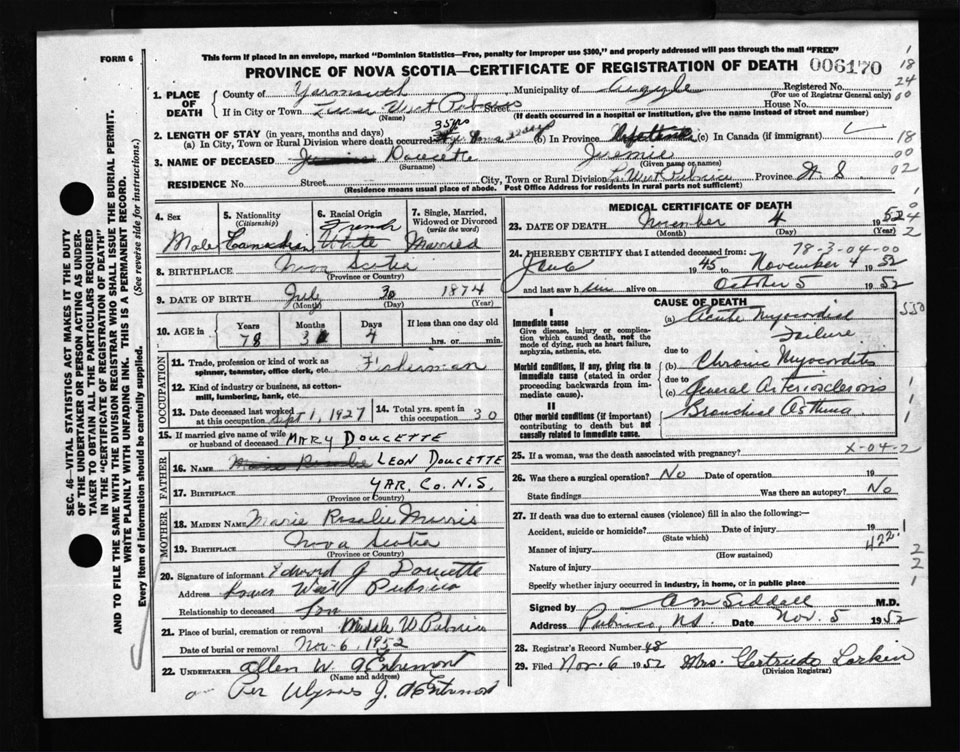 FORM 6
This form if placed in an envelope, marked "Dominion Statistics—Free, penalty for improper use $300," and properly addressed will pass through the mail "FREE"
PROVINCE OF NOVA SCOTIA—CERTIFICATE OF REGISTRATION OF DEATH 006170
SEC. 46-VITAL STATISTICS ACT MAKES IT THE DUTY
OF THE UNDERTAKER OR PERSON ACTING AS UNDER-
TAKER TO OBTAIN ALL THE PARTICULARS REQUIRED
IN THE "CERTIFICATE OF REGISTRATION OF DEATH"
AND TO FILE THE SAME WITH THE DIVISION REGISTRAR WHO SHALL ISSUE THE BURIAL PERMIT.
WRITE PLAINLY WITH UNFADING INK. THIS IS A PERMANENT RECORD.
Every item of information should be carefully supplied. (See reverse side for instructions.)
1. PLACE OF DEATH
County of Yarmouth Municipality of Argyle Registered No.
(For use of Registrar General only)
If in City or Town Lower West Pubnico Street House No.
(Name) (If death occurred in a hospital or institution, give the name instead of street and number)
2. LENGTH OF STAY (in years, months and days)
(a) In City, Town or Rural Division where death occurred 35 yrs (b) In Province (c) In Canada (if immigrant)
3. NAME OF DECEASED Doucette Jeremie
(Surname) (Given name or names)
RESIDENCE No. Street City, Town or Rural Division L. West Pubnico Province N. S.
(Residence means usual place of abode. Post Office Address for residents in rural parts not sufficient)
4. Sex
Male
5. Nationality (Citizenship)
Canadian
6. Racial Origin
French
White
7. Single, Married, Widowed or Divorced (write the word)
Married
8. BIRTHPLACE Nova Scotia
(Province or Country)
9. DATE OF BIRTH July 30 1874
(Month) (Day) (Year)
10. AGE in Years Months Days If less than one day
78 3 4 hrs. or min.
OCCUPATION
11. Trade, profession or kind of work as spinner, teamster, office clerk, etc. Fisherman
12. Kind of industry or business, as cotton-mill, lumbering, bank, etc.
13. Date deceased last worked at this occupation Sept 1, 1927
14. Total yrs. spent in this occupation 30
15. If married give name of wife or husband of deceased MARY DOUCETTE
FATHER
16. NAME LEON DOUCETTE
17. BIRTHPLACE YAR. CO. N.S.
(Province or Country)
MOTHER
18. MAIDEN NAME Marie Rosalie Murris
19. BIRTHPLACE Nova Scotia
(Province or Country)
20. Signature of informant Edward J Doucette
Address Lower West Pubnico
Relationship to deceased Son
21. Place of burial, cremation or removal Middle W. Pubnico
Date of burial or removal Nov. 6, 1952
22. UNDERTAKER Allen W. d'Entremont
(Name and address)
Per Ulysses J. d'Entremont
MEDICAL CERTIFICATE OF DEATH
23. DATE OF DEATH November 4 1952
(Month) (Day) (Year)
78-3-04-00
24. I HEREBY CERTIFY that I attended deceased from:
June 1945 to November 4 1952
and last saw him alive on October 5 1952
CAUSE OF DEATH
I
Immediate cause
Give disease, injury or complication which caused death, not the mode of dying, such as heart failure, asphyxia, asthenia, etc.
(a) Acute Myocardial Failure
due to
Morbid conditions, if any, giving rise to immediate cause (stated in order proceeding backwards from immediate cause).
(b) Chronic Myocarditis
due to
(c) General Arteriosclerosis
II
Other morbid conditions (if important) contributing to death but not causally related to immediate cause.
Bronchial Asthma
25. If a woman, was the death associated with pregnancy? X-04-2
26. Was there a surgical operation? No Date of operation 19
State findings Was there an autopsy? No
27. If death was due to external causes (violence) fill in also the following:—
Accident, suicide or homicide? Date of injury 19
(State which)
Manner of injury 422
(How sustained)
Nature of injury
Specify whether injury occurred in industry, in home, or in public place
Signed by A M Siddall M.D.
Address Pubnico, N.S. Date Nov. 5 1952
28. Registrar's Record Number 48
29. Filed Nov. 6 1952 Mrs. Gertrude Larkin
(Division Registrar)